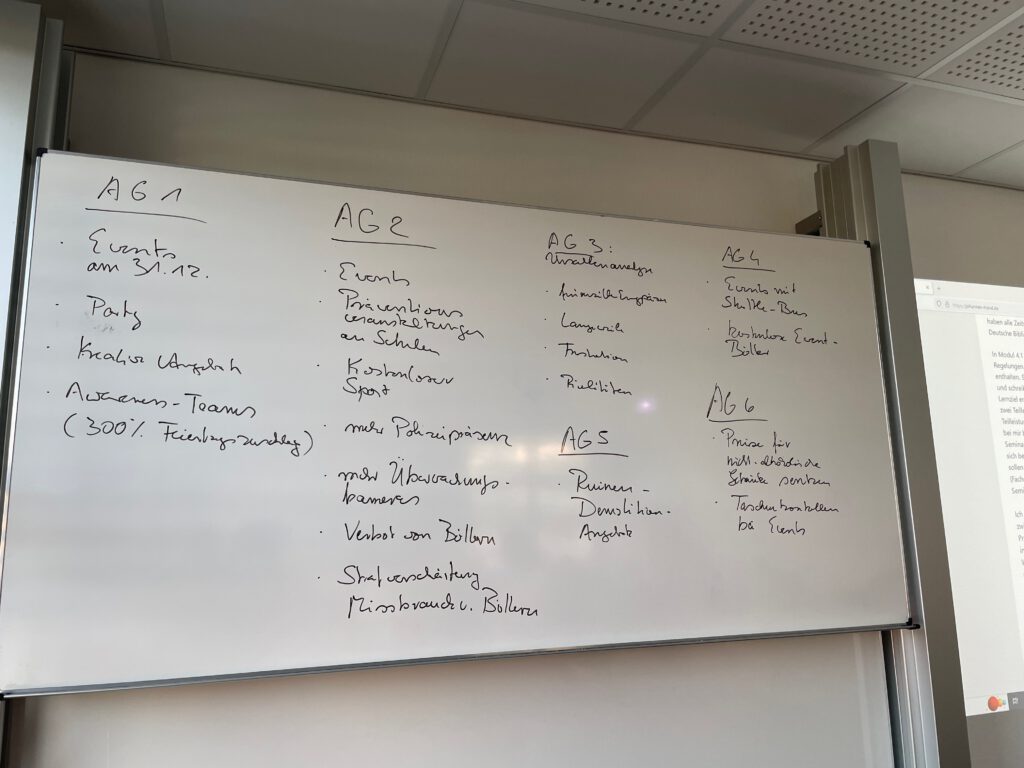 AG 1
· Events
am 31.12.
· Party
· Kreativ Angebote
· Awareness-Teams
(300% Feiertagszuschlag)
AG2
· Events
· Präventions
veranstaltungen
an Schulen
· Kostenloser
Sport
· mehr Polizeipräsenz
· mehr Überwachungs-
kameras
· Verbot von Böllern
· Strafverschärfung
Missbrauch v. Böllern
AG 3:
Ursachenanalyse
· finanzielle Engpässe
· Langeweile
· Frustration
· Rivalitäten
AG5
· Ruinen-
Demolition-
Angebote
AG4
· Events mit
Shuttle-Bus
· kostenlose Event-
Böller
AG6
· Preise für
nicht-alkoholische
Getränke senken
· Taschenkontrollen
bei Events
haben alle
Deutsche
In Modul 4.1
Regelungen
enthalten.
und
Lernziel
zwei
bei mir
sich
sollen
Ich